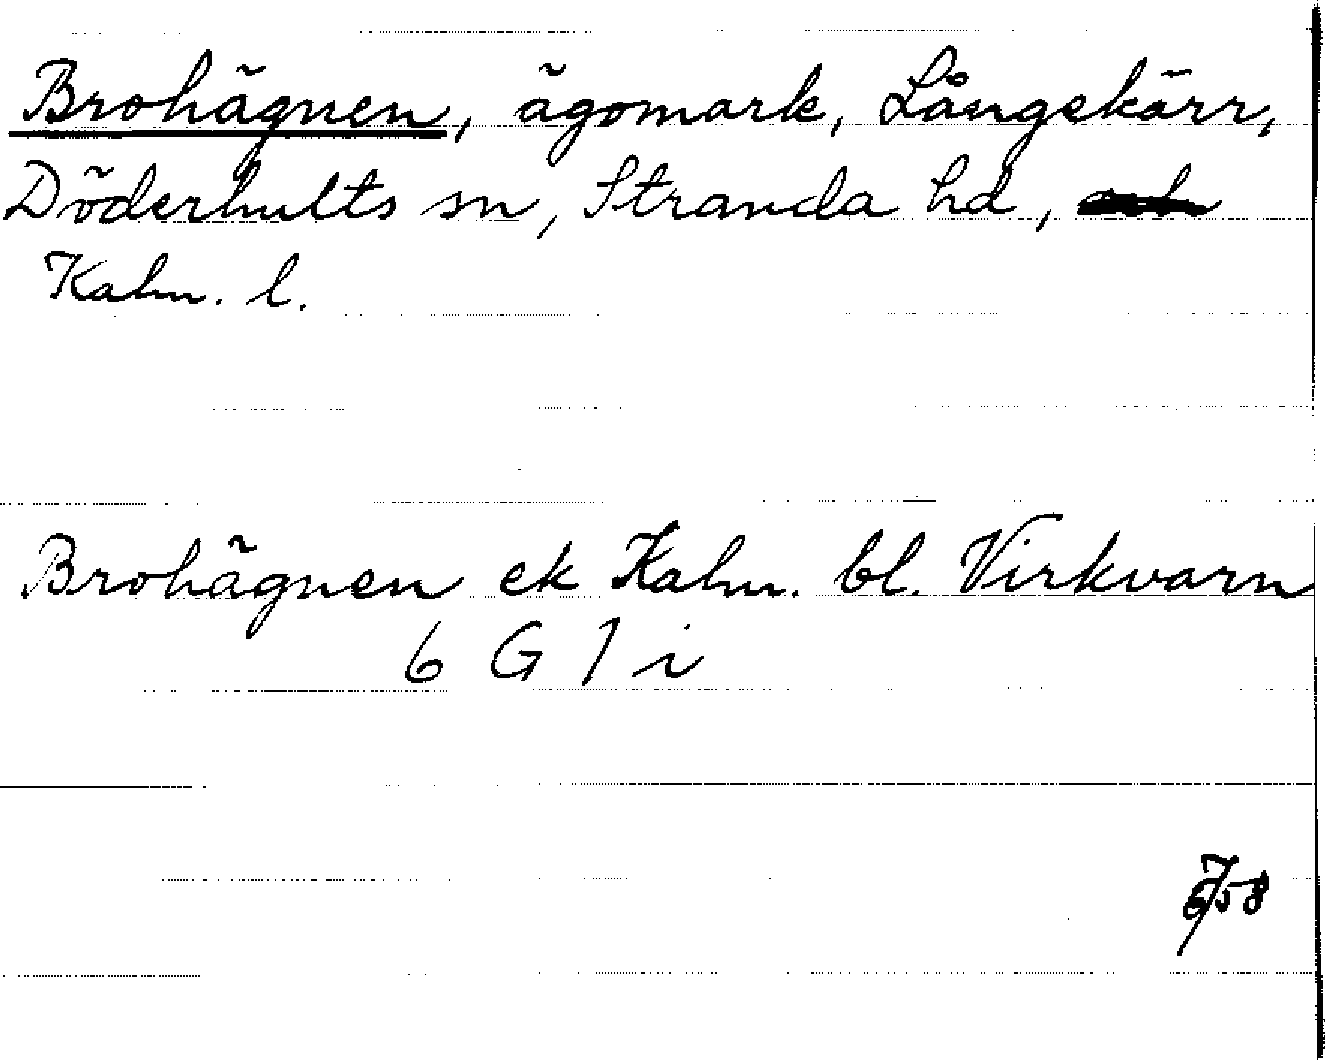 Brohägnen, ägomark, Långekärr,
Döderhults sn, Stranda hd,
Kalm. l.
Brohägnen ek Kalm. bl. Virkvarn
6 G 7 i